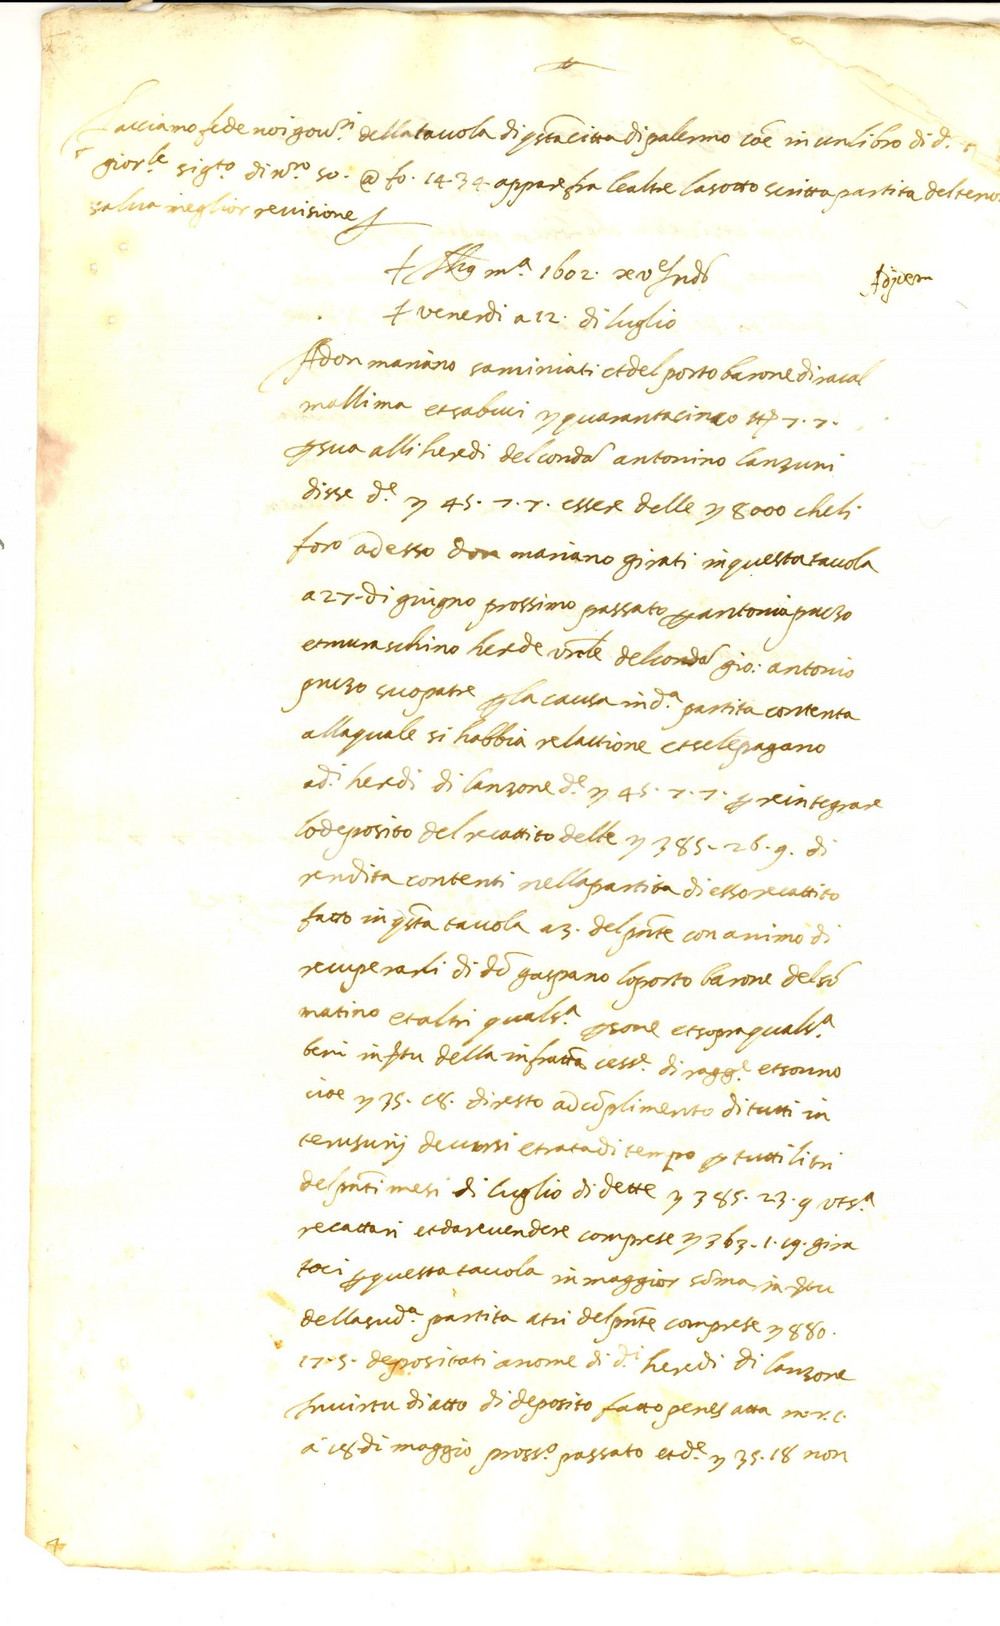 facciamo fede noi gov.ri della tavola di q.sta citta di palermo coe in un libro di d.
gior.le sig.to di n.ro so. @ fo. 1434 appare fra le altre la sotto scritta partita del teno
salva meglior revisione
m.a 1602.
† venerdi a 12. di luglio
A don mariano saminiati et del porto barone di racal
mallima et sabuci quarantacinco tt 7. 7.
p sua alli heredi del condā antonino lanzuni
disse d.e 45. 7. 7. essere delle 8000 che li
foro ad esso don mariano girati in questa tavola
a 27. di giugno prossimo passato p antonia puczo
et muraschino herede del condā gio: antonio
puczo suo patre p la causa in d.a partita contenta
alla quale si habbia relattione et se le pagano
ad.i heredi di lanzone d.e 45. 7. 7. p reintegrare
lo deposito del recattito delle 385. 26. 9. di
rendita contenti nella partita di esso recattito
fatto in q.sta tavola a 3. del pn̄te con animo di
recuperarli di dō gasparo loporto barone del
matino et altri quals.a p sone et sopra quals.a
beni in v.tu della infratta cess.e di ragg.e et sonno
cioe 35. 18. di resto ad cōplimento di tutti in
terusurij decursi et rata di tempo p tutti li tri
del pn̄ti mesi di luglio di dette 385. 23. 9 ut s.a
recattari et da revendere comprese 363. 1. 19. gira
toci p questa tavola in maggior sōma in v.tu
della sud.a partita a tri del pn̄te comprese 880.
17. 5. depositati a nome di d.i heredi di lanzone
in virtu di atto di deposito fatto penes atta m. r. c.
a 18 di maggio pross.o passato et d.e 35. 18 non